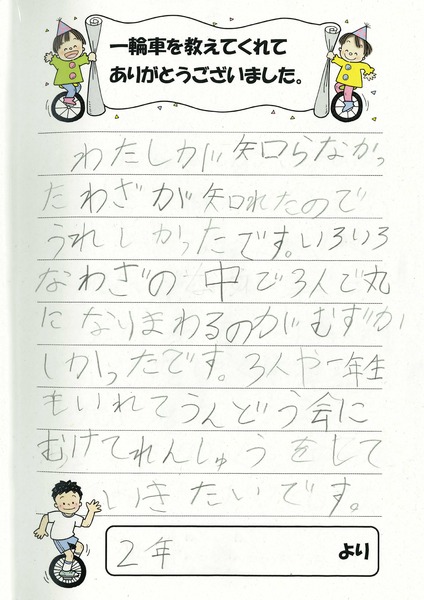 一輪車を教えてくれて
ありがとうございました。
わたしが知らなかっ
たわざが知れたので
うれしかったです。いろいろ
なわざの中で3人で丸
になりまわるのがむずか
しかったです。3人や一年生
もいれてうんどう会に
むけてれんしゅうをして
いきたいです。
2年 より